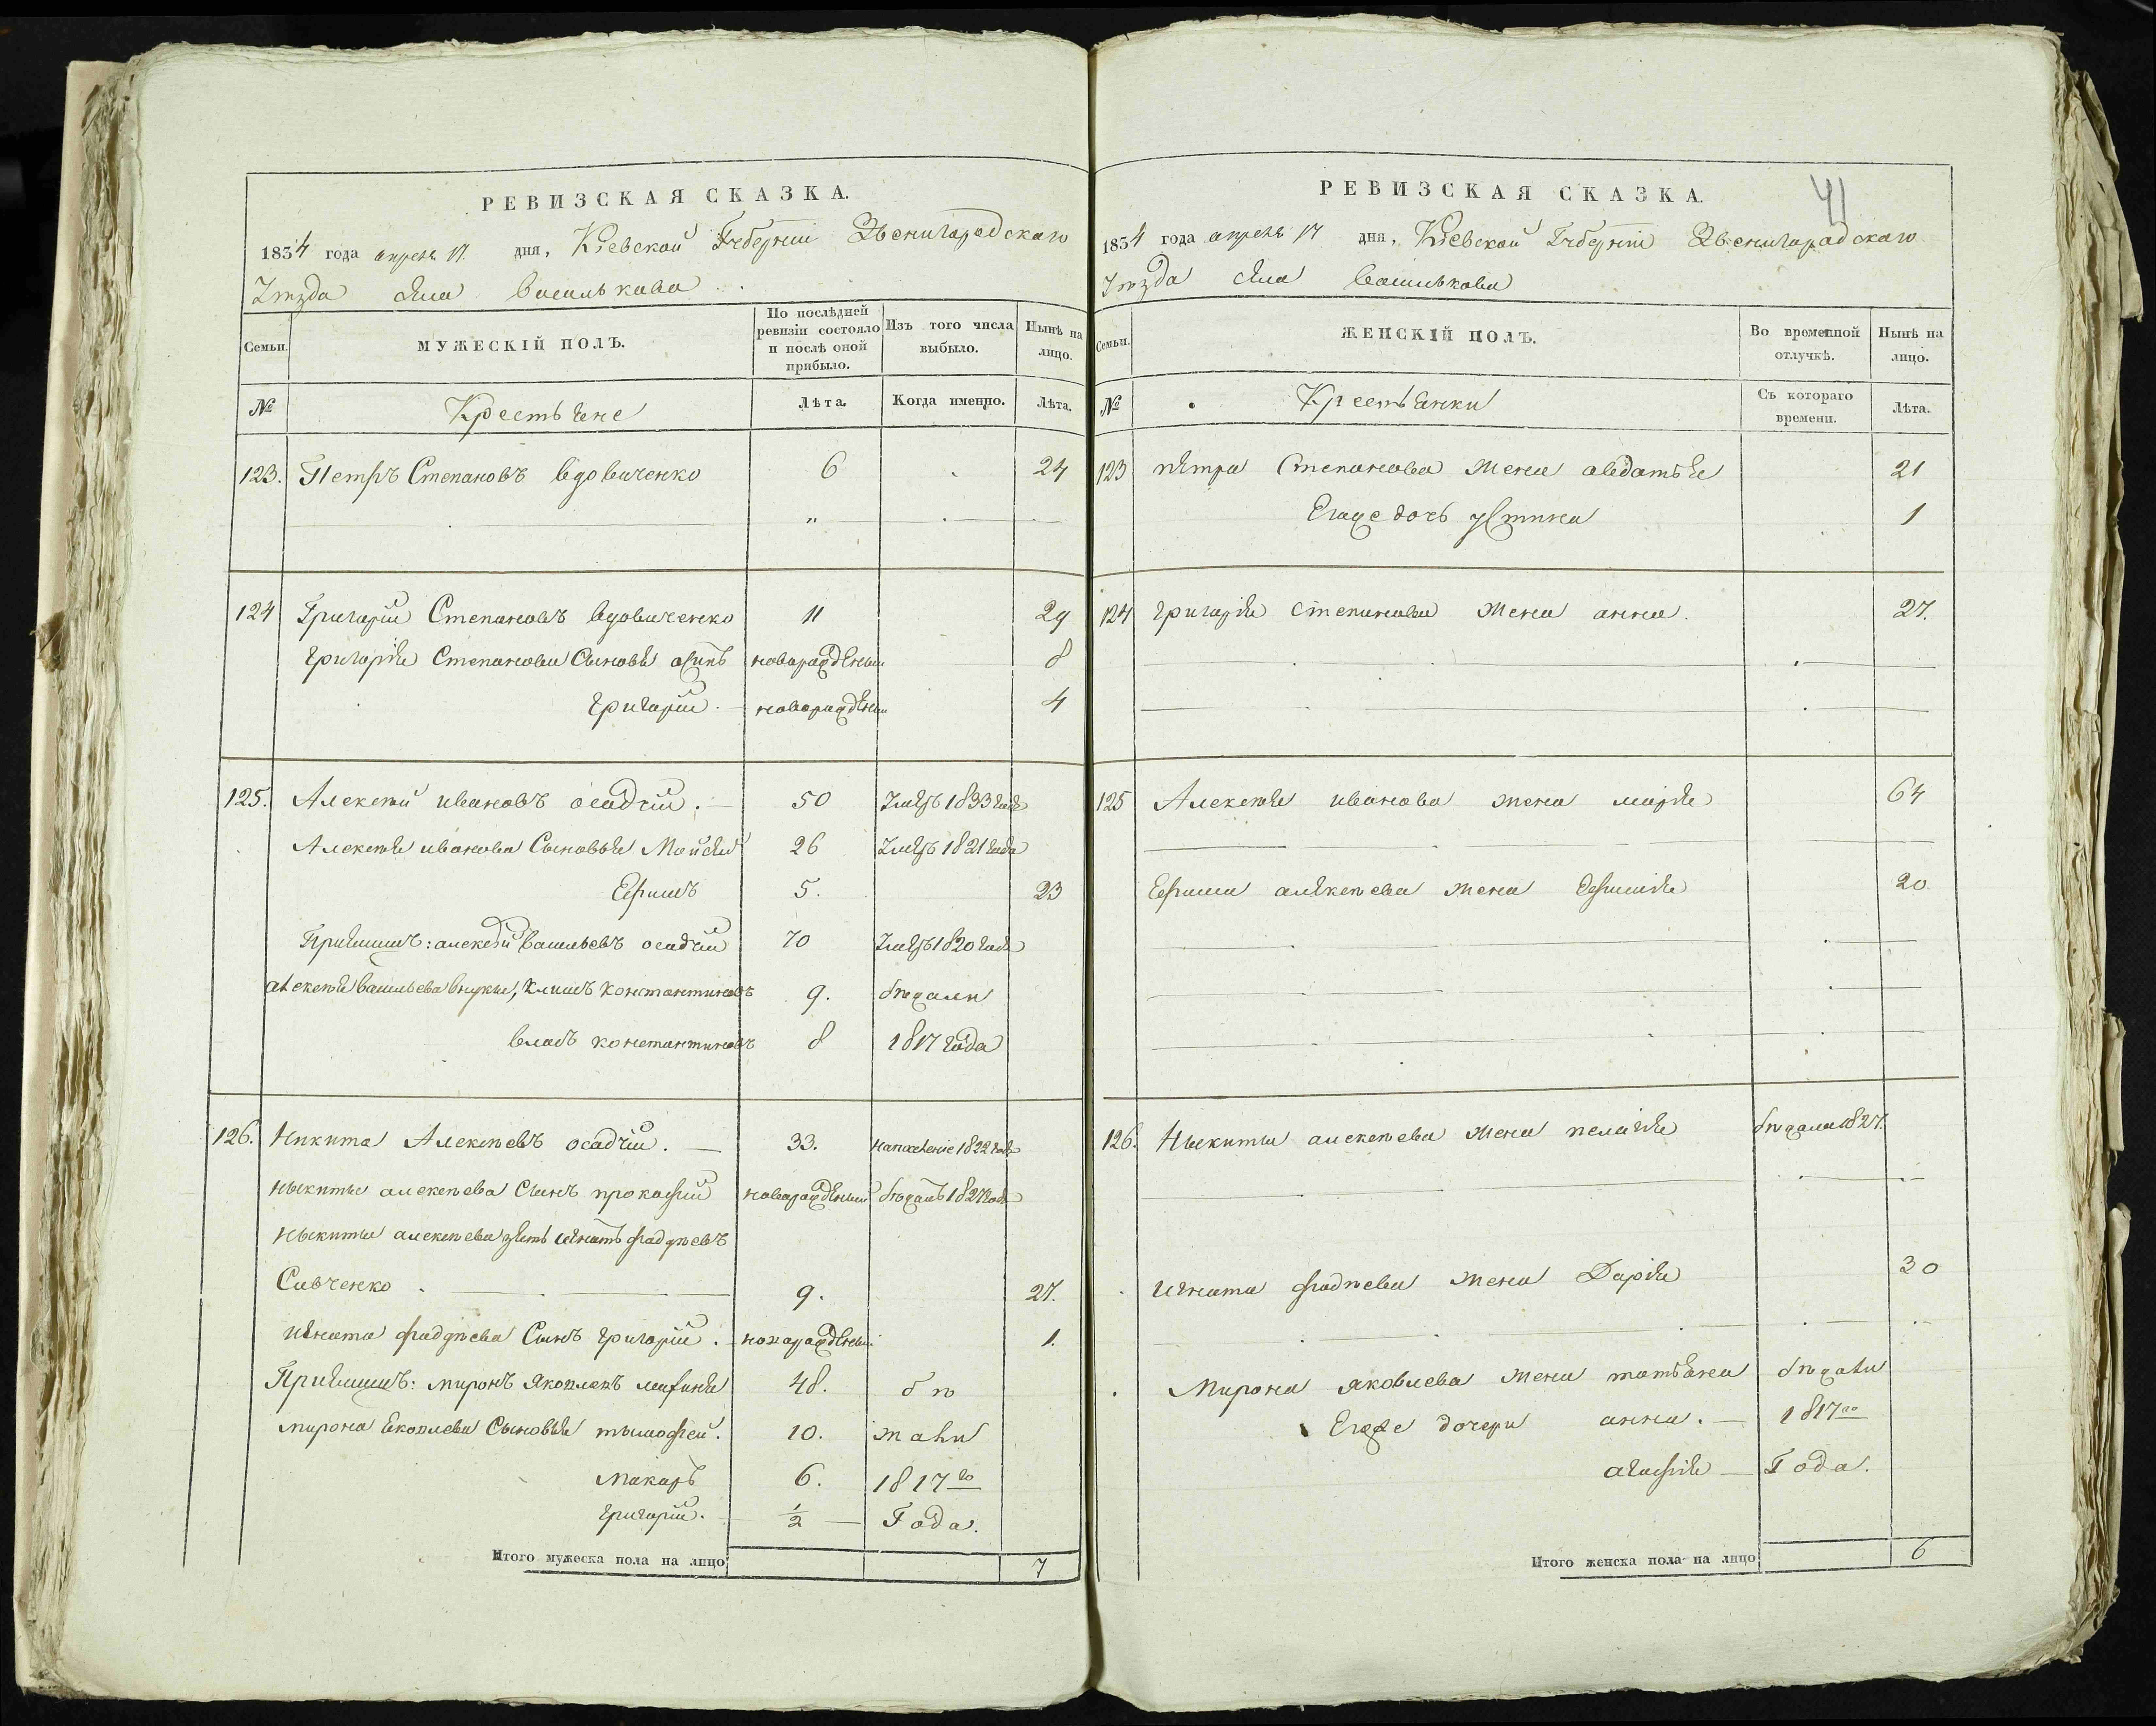 РЕВИЗСКАЯ СКАЗКА.
1834 года апреля 17 дня, Кіевской Губерніи Звенигарадскаго
Уѣзда села Василькова
Семьи. МУЖЕСКІЙ ПОЛЪ. По послѣдней ревизіи состояло и послѣ оной прибыло. Изъ того числа выбыло. Нынѣ на лицо.
№ Крестьяне Лѣта. Когда именно. Лѣта.
123. Петръ Степановъ вдовиченко 6 24
124 Григорій Степановъ вдовиченко 11 29
григорія Степанова Сыновя осипъ новараждѣный 8
григорій. новараждѣный 4
125. Алексѣй ивановъ осадчій. 50 Умеръ 1833 года
Алексѣя иванова Сыновья Мойсей 26 Умеръ 1821 года
Ефимъ 5. 23
Приемышъ: алексѣй васильевъ осадчій 70 Умеръ 1820 года
алексѣя васильева внуки, Климъ Константиновъ 9. бѣжали
власъ константиновъ 8 1817 года
126. Никита Алексѣевъ осадчій. 33. 1822 года
ныкиты алексѣева Сынъ прокофій новараждѣный бѣжалъ 1827 года
ныкиты алексѣева зять игнатъ фаддѣевъ
Савченко 9. 27.
игната фаддѣева Сынъ григорій. 1.
Приемышъ: миронъ 48. бѣ
мирона Сыновья тымофей. 10. жали
Макаръ 6. 1817го
григорій. ½ Года.
Итого мужеска пола на лицо 7
РЕВИЗСКАЯ СКАЗКА. 41
1834 года апреля 17 дня, Кіевской Губерніи Звенигарадскаго
Уѣзда села Василькова
Семьи. ЖЕНСКІЙ ПОЛЪ. Во временной отлучкѣ. Нынѣ на лицо.
№ Крестьянки Съ котораго времени. Лѣта.
123 петра Степанова жена авдотья 21
Егоже дочь устина 1
124 григорія степанова жена анна. 27.
125 Алексѣя иванова жена марія 64
Ефима алексѣева жена 20
126. Ныкиты алексѣева жена пелагія бѣжала 1827.
игната фадѣева жена Дарія 30
Мирона яковлева жена татьяна бѣжали
Егоже дочери анна. 1817го
агафія Года.
Итого женска пола на лицо 6